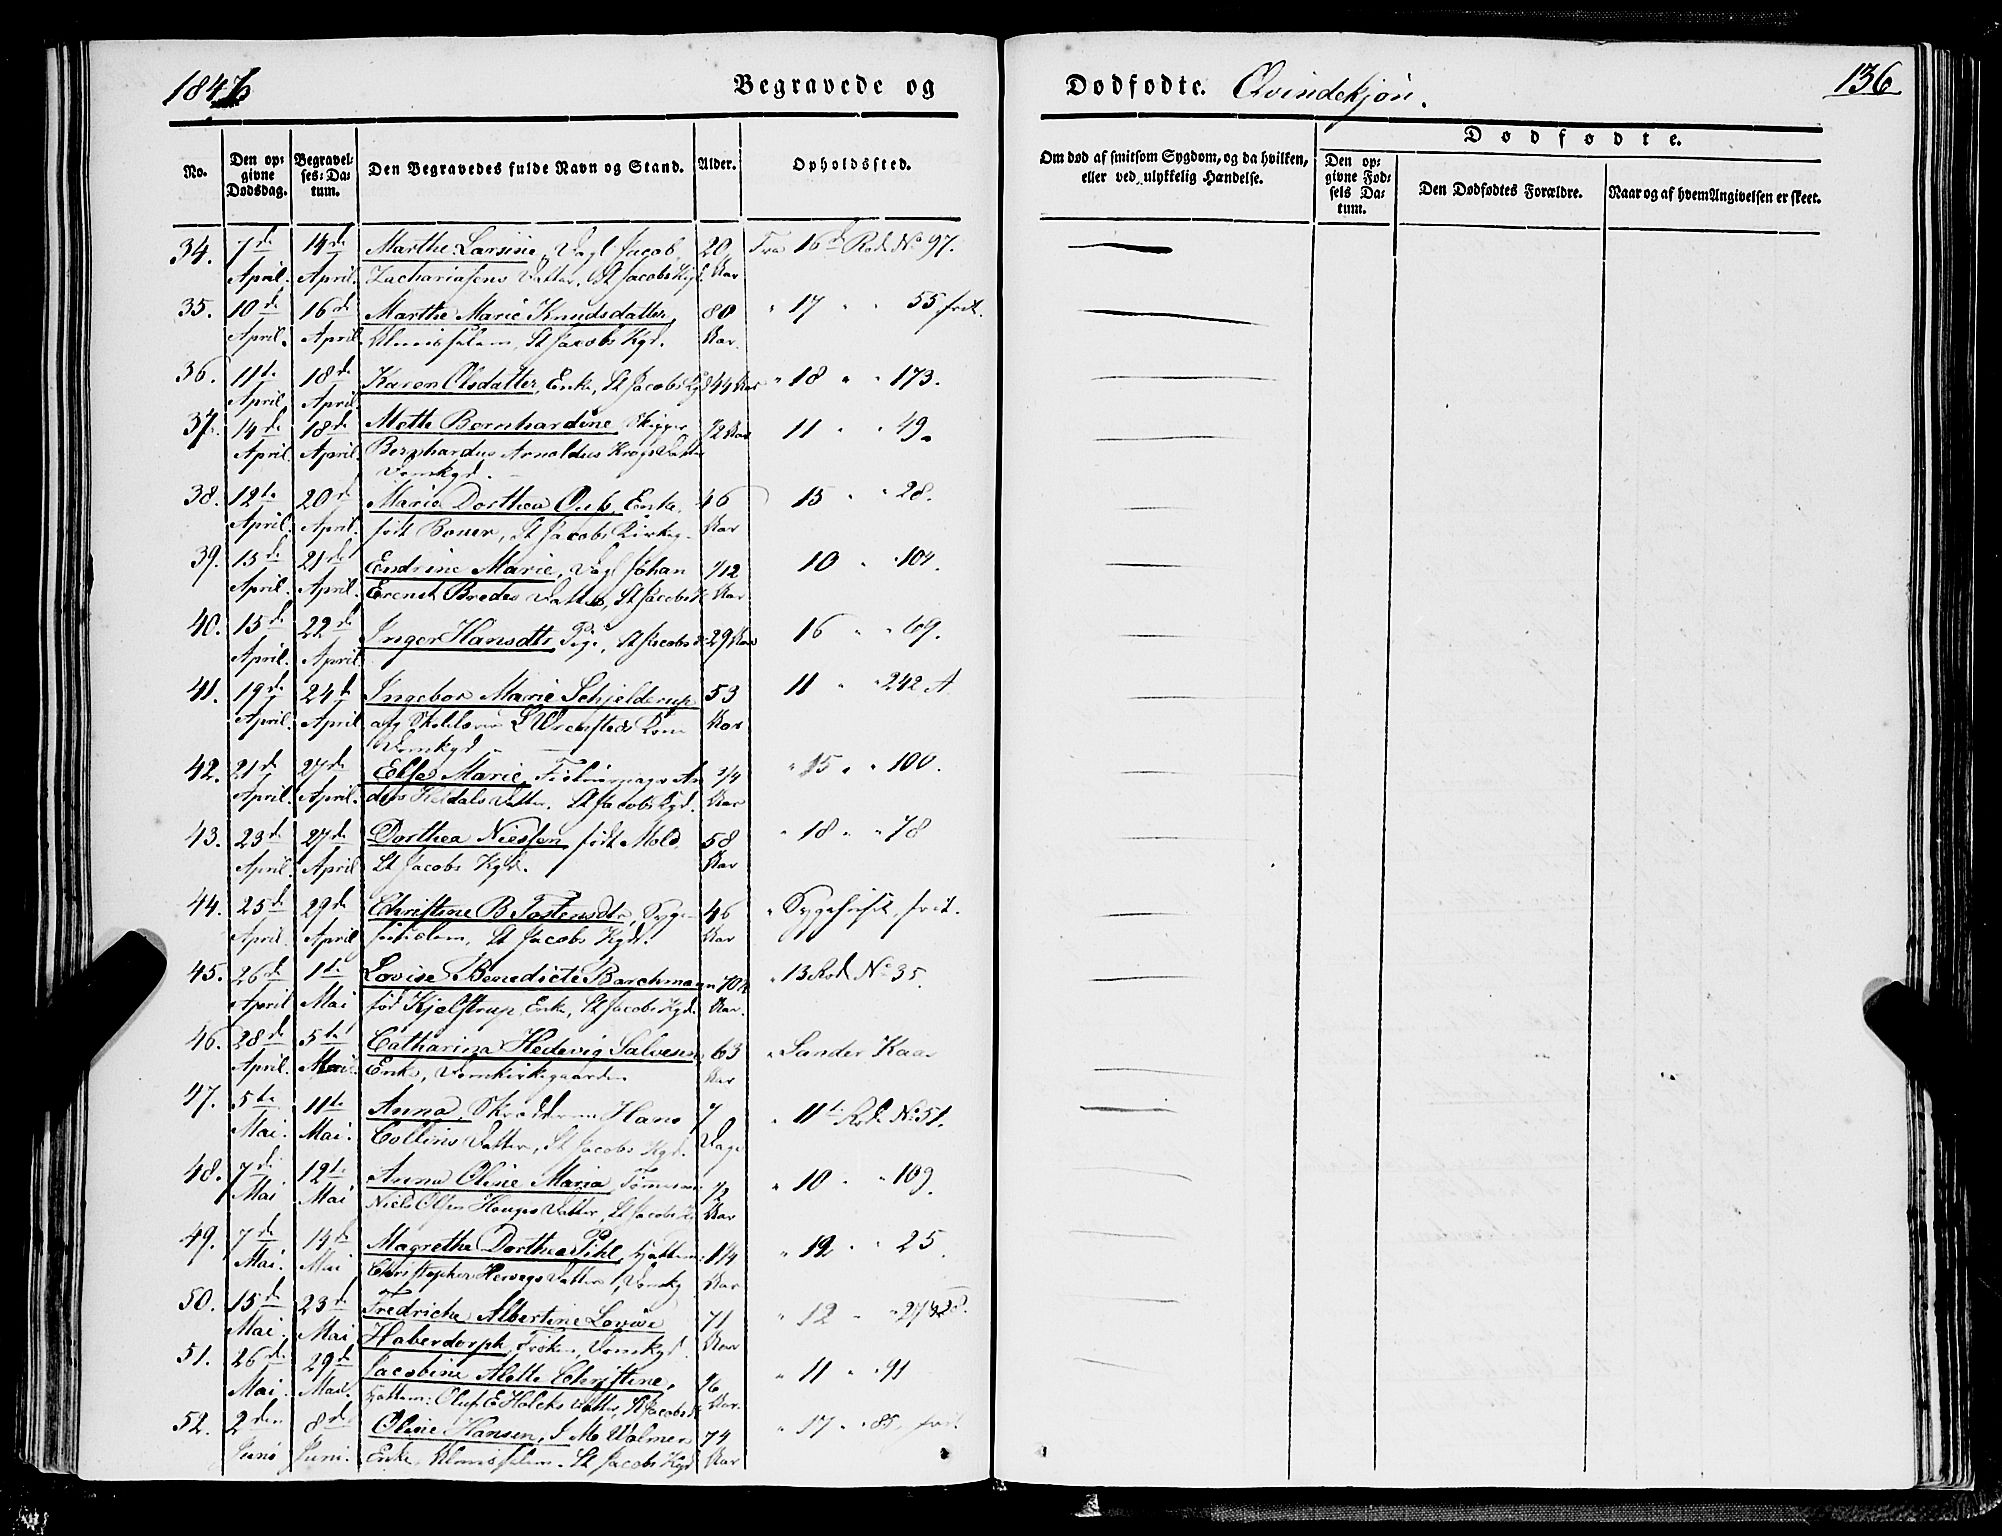 1846
Begravede og
Dødfødte. Qvindekjøn.
136
No.
Den opgivne Dødsdag.
Begravelses-Datum.
Den Begravedes fulde Navn og Stand.
Alder.
Opholdssted.
Om død af smitsom Sygdom, og da hvilken, eller ved ulykkelig Hændelse.
Dødfødte.
Den opgivne Fødsels Datum.
Den Dødfødtes Forældre.
Naar og af hvem Angivelsen er skeet.
34. 7de 14de Marthe Larsine, Jacob 20 Fra 16de Rode No 97.
April. April. Zachariasens Datter, St Jacobs Kgd. Aar
35. 10de 16de Marthe Marie Knudsdatter, 80 " 17 " " 55 frit.
April. April. Almisselem, St Jacobs Kgd. Aar.
36. 11te 18de Karen Olsdatter, Enke, St Jacobs Kgd 44 Aar " 18 " " 173.
April. April.
37. 14de 18de Mette Bernhardine, Skipper 1/2 Aar 11 " " 49.
April. April. Bernhardus Arnoldus Krogs Datter
Domkgd.
38. 12te 20de Marie Dorthea Enke, 46 15 " " 28.
April. April. født Boner, St Jacobs Kirkeg. Aar
39. 15de 21de Endrine Marie, Johan 1/12 10 " " 104.
April. April. Erenst Bredes Datter, St Jacobs K Aar
40. 15de 22de Inger Hansdtr, Pige, St Jacobs K 29 Aar 16 " " 69.
April. April.
41. 19de 24de Ingebor Marie Schjelderup 53 11 " " 242 A
April. April. Kone Aar
Domkgd
42. 21de 27de Else Marie, An 3/4 " 15 " " 100.
April. April. ders Datter. St Jacobs Kgd. Aar
43. 23de 27de Dorthea Nielsen født Mold, 58 " 18 " " 78
April April St Jacobs Kgd. Aar
44. 25de 29de Christine B. Tostensdtr, Syge 46 " Sygehuset, frit.
April. April St Jacobs Kgd. Aar
45. 26de 1te Lovise Benedicte Barchmann 70 1/2 " 13 Rode No 35.
April Mai fød Kjelstrup, Enke, St Jacobs Kgd. Aar.
46. 28de 5te Catharina Hedevig Salvesen 63 " Sander Kaas
April. Mai. Enke, Domkirkegaarden Aar
47. 5te 11te Anna, Hans 7 " 11te Rode No 51.
Mai. Mai. Collins Datter, St Jacobs Kgd. Dage
48. 7de 12te Anna Oline Maria, 1/2 " 10 " " 109.
Mai Mai Niels Olsen Hauges Datter, St Jacobs K Aar
49. 7de 14de Magrethe Dorthea Pihl, 1 1/4 " 12 " " 25.
Mai. Mai Christopher Datter, Domkg Aar
50. 15de 23de Fredriche Albertine Lovise 71 " 12
Mai. Mai Haberdorph, Frøken, Domkgd. Aar
51. 26de 29de Jacobine Alette Christine, " 11 " " 91
Mai. Mai. Oluf E Holcks Datter, St Jacobs K Aar.
52. 2den 8de Oline Hansen, 74 " 17 " 85, frit
Juni Juni. Enke Almisselem. St Jacobs Kgd Aar